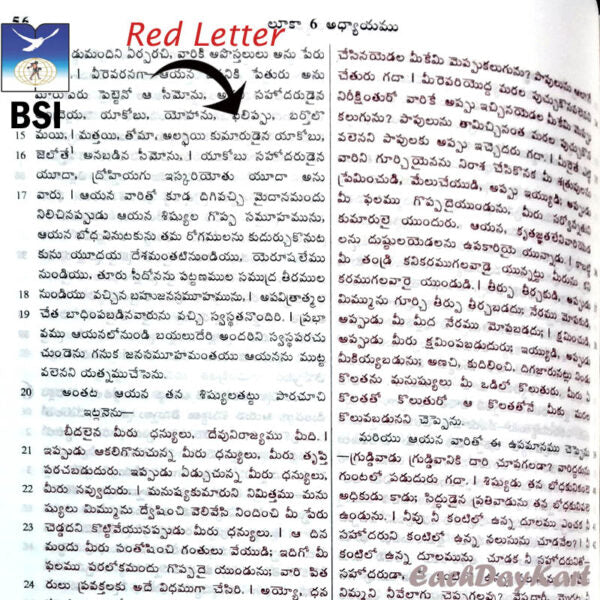 56
లూకా 6 అధ్యాయము
Red Letter
BSI
డుమందిని ఏర్పరచి, వారికి అపొస్తలులు అను పేరు
వీరెవరనగా ఆయన
పేతురు అను
పేరు పెట్టిన ఆ సీమోను,
సహోదరుడైన
యాకోబు, యోహాను, ఫిలిప్పు, బర్తొలొ
15 మయి. | మత్తయి, తోమా, అల్ఫయి కుమారుడైన యాకోబు,
16 జెలోతే అనబడిన సీమోను. | యాకోబు సహోదరుడైన
యూదా, ద్రోహియగు ఇస్కరియోతు యూదా అను
17 వారు. | ఆయన వారితో కూడ దిగివచ్చి మైదానమందు
నిలిచినప్పుడు ఆయన శిష్యుల గొప్ప సమూహమును,
ఆయన బోధ వినుటకును తమ రోగములను కుదుర్చుకొనుట
కును యూదయ దేశమంతటినుండియు, యెరూషలేము
నుండియు, తూరు సీదోనను పట్టణముల సముద్ర తీరముల
18 నుండియు వచ్చిన బహుజనసమూహమును, | అపవిత్రాత్మల
19 చేత బాధింపబడినవారును వచ్చి స్వస్థతనొందిరి. | ప్రభా
వము ఆయనలోనుండి బయలుదేరి అందరిని స్వస్థపరచు
చుండెను గనుక జనసమూహమంతయు ఆయనను ముట్ట
వలెనని యత్నముచేసెను.
20 అంతట ఆయన తన శిష్యులతట్టు పారచూచి
ఇట్లనెను—
బీదలైన మీరు ధన్యులు, దేవునిరాజ్యము మీది. |
21 ఇప్పుడు ఆకలిగొనుచున్న మీరు ధన్యులు, మీరు తృప్తి
పరచబడుదురు. ఇప్పుడు ఏడ్చుచున్న మీరు ధన్యులు,
22 మీరు నవ్వుదురు. | మనుష్యకుమారుని నిమిత్తము మను
ష్యులు మిమ్మును ద్వేషించి వెలివేసి నిందించి మీ పేరు
23 చెడ్డదని కొట్టివేయునప్పుడు మీరు ధన్యులు. | ఆ దిన
మందు మీరు సంతోషించి గంతులు వేయుడి; ఇదిగో మీ
ఫలము పరలోకమందు గొప్పదై యుండును; వారి పిత
24 రులు ప్రవక్తలకు అదే విధముగా చేసిరి. | అయ్యో, ధన
చేసినయెడల మీకేమి మెప్పుకలుగును? పాపులును
చేతురు గదా. | మీరెవరియొద్ద మరల పుచ్చుకొనవలెనని
నిరీక్షింతురో వారికే అప్పు ఇచ్చినయెడల మీకేమి మెప్పు
కలుగును? పాపులును తామిచ్చినంత మరల పుచ్చుకొన
వలెనని పాపులకు అప్పు ఇచ్చెదరు గదా.
వారిని గూర్చియైనను నిరాశ చేసికొనక మీ శత్రువులను
ప్రేమించుడి, మేలుచేయుడి, అప్పు ఇయ్యుడి;
మీ ఫలము గొప్పదైయుండును, మీరు సర్వోన్నతుని
కుమారులై యుందురు. ఆయన, కృతజ్ఞతలేనివారియెడ
లను దుష్టులయెడలను ఉపకారియై యున్నాడు.
మీ తండ్రి కనికరముగలవాడై యున్నట్టు మీరును
కరముగలవారై యుండుడి. | తీర్పు తీర్చకుడి, అప్పుడు
మిమ్మును గూర్చి తీర్పు తీర్చబడదు; నేరము మోపకుడి,
అప్పుడు మీ మీద నేరము మోపబడదు; | క్షమించుడి,
అప్పుడు మీరు క్షమింపబడుదురు; ఇయ్యుడి,
మీకియ్యబడును; అణచి, కుదిలించి, దిగజారునట్లు నిండు
కొలతను మనుష్యులు మీ ఒడిలో కొలుతురు. మీరు ఏ
కొలతతో కొలుతురో ఆ కొలతతోనే మీకు మరల
కొలువబడునని చెప్పెను.
మరియు ఆయన వారితో ఈ ఉపమానము చెప్పెను
—గ్రుడ్డివాడు గ్రుడ్డివానికి దారి చూపగలడా?
గుంటలో పడుదురు గదా. | శిష్యుడు తన బోధకునికంటె
అధికుడు కాడు; సిద్ధుడైన ప్రతివాడును తన బోధకునివలె
ఉండును. | నీవు నీ కంటిలో ఉన్న దూలము ఎంచక నీ
సహోదరుని కంటిలో ఉన్న నలుసును చూడనేల? |
కంటిలో ఉన్న దూలమును చూడక నీ సహోదరునితో
సహోదరుడా, నీ కంటిలో ఉన్న
EachDayKart